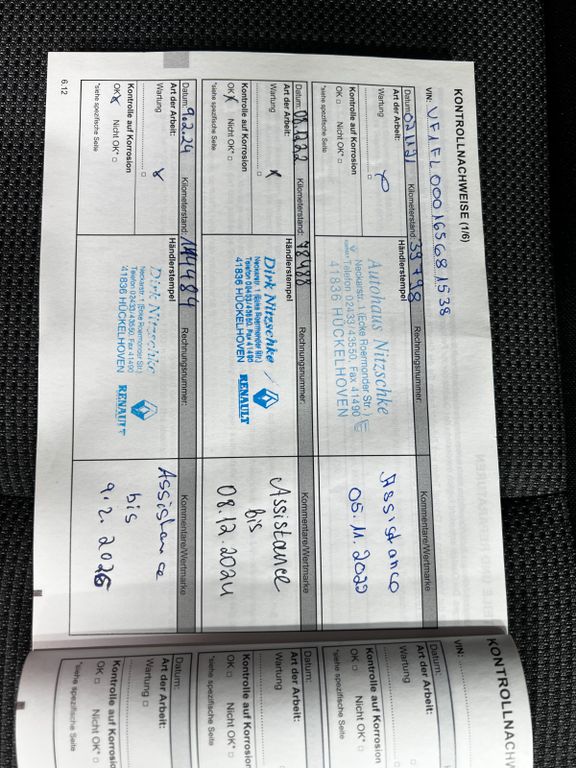 KONTROLLNACHWEISE (1/6)
VIN:
Datum: Kilometerstand: 39798 Rechnungsnummer:
Art der Arbeit: Händlerstempel Kommentare/Wertmarke
Wartung
Kontrolle auf Korrosion
OK □ Nicht OK* □
*siehe spezifische Seite
Autohaus Nitzschke
Neckarstr. 1 (Ecke Roermonder Str.)
Telefon 02433/43550, Fax 41490
41836 HÜCKELHOVEN
Assistance
05.11.2022
Datum: 08.12.22 Kilometerstand: 78488 Rechnungsnummer:
Art der Arbeit: Händlerstempel Kommentare/Wertmarke
Wartung
Kontrolle auf Korrosion
OK Nicht OK* □
*siehe spezifische Seite
Dirk Nitzschke
Neckarstr. 1 (Ecke Roermonder Str.)
Telefon 02433/43550, Fax 41490
41836 HÜCKELHOVEN
RENAULT
Assistance
bis
08.12.2024
Datum: 9.2.24 Kilometerstand: Rechnungsnummer:
Art der Arbeit: Händlerstempel Kommentare/Wertmarke
Wartung
Kontrolle auf Korrosion
OK Nicht OK* □
*siehe spezifische Seite
Dirk Nitzschke
Neckarstr. 1 (Ecke Roermonder Str.)
Telefon 02433/43550, Fax 41490
41836 HÜCKELHOVEN
RENAULT
Assistance
bis
9.2.2026
6.12
KONTROLLNACHW
VIN:
Datum:
Art der Arbeit:
Wartung
Kontrolle auf Korrosion
OK □ Nicht OK* □
*siehe spezifische Seite
Datum:
Art der Arbeit:
Wartung
Kontrolle auf Korrosion
OK □ Nicht OK* □
*siehe spezifische Seite
Datum:
Art der Arbeit:
Wartung □
Kontrolle auf Korrosion
OK □ Nicht OK* □
*siehe spezifische Seite